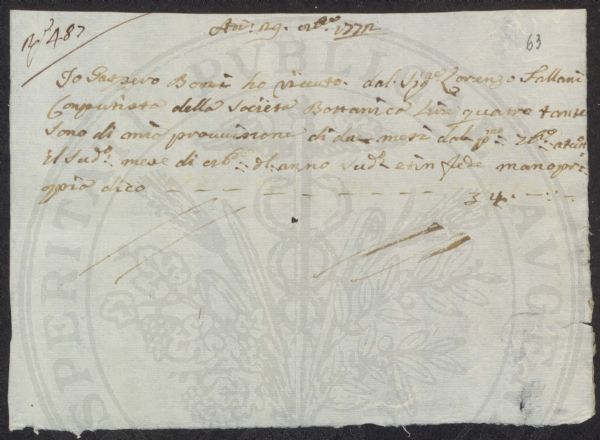 N° 487
Adi: 29. 8bre 1772
63
Io Gaspero Boni ho riceuto dal Sigre Lorenzo Fallani
Conputista della Società Bottanica Lire quatro tante
Sono di mia provvisione di due mesi dal pmo 7bre a tutto
il Sudo mese di 8bre dl anno Sudo e in fede mano pro
opia dico
34
PVBLIC
SPERITA
AVGE